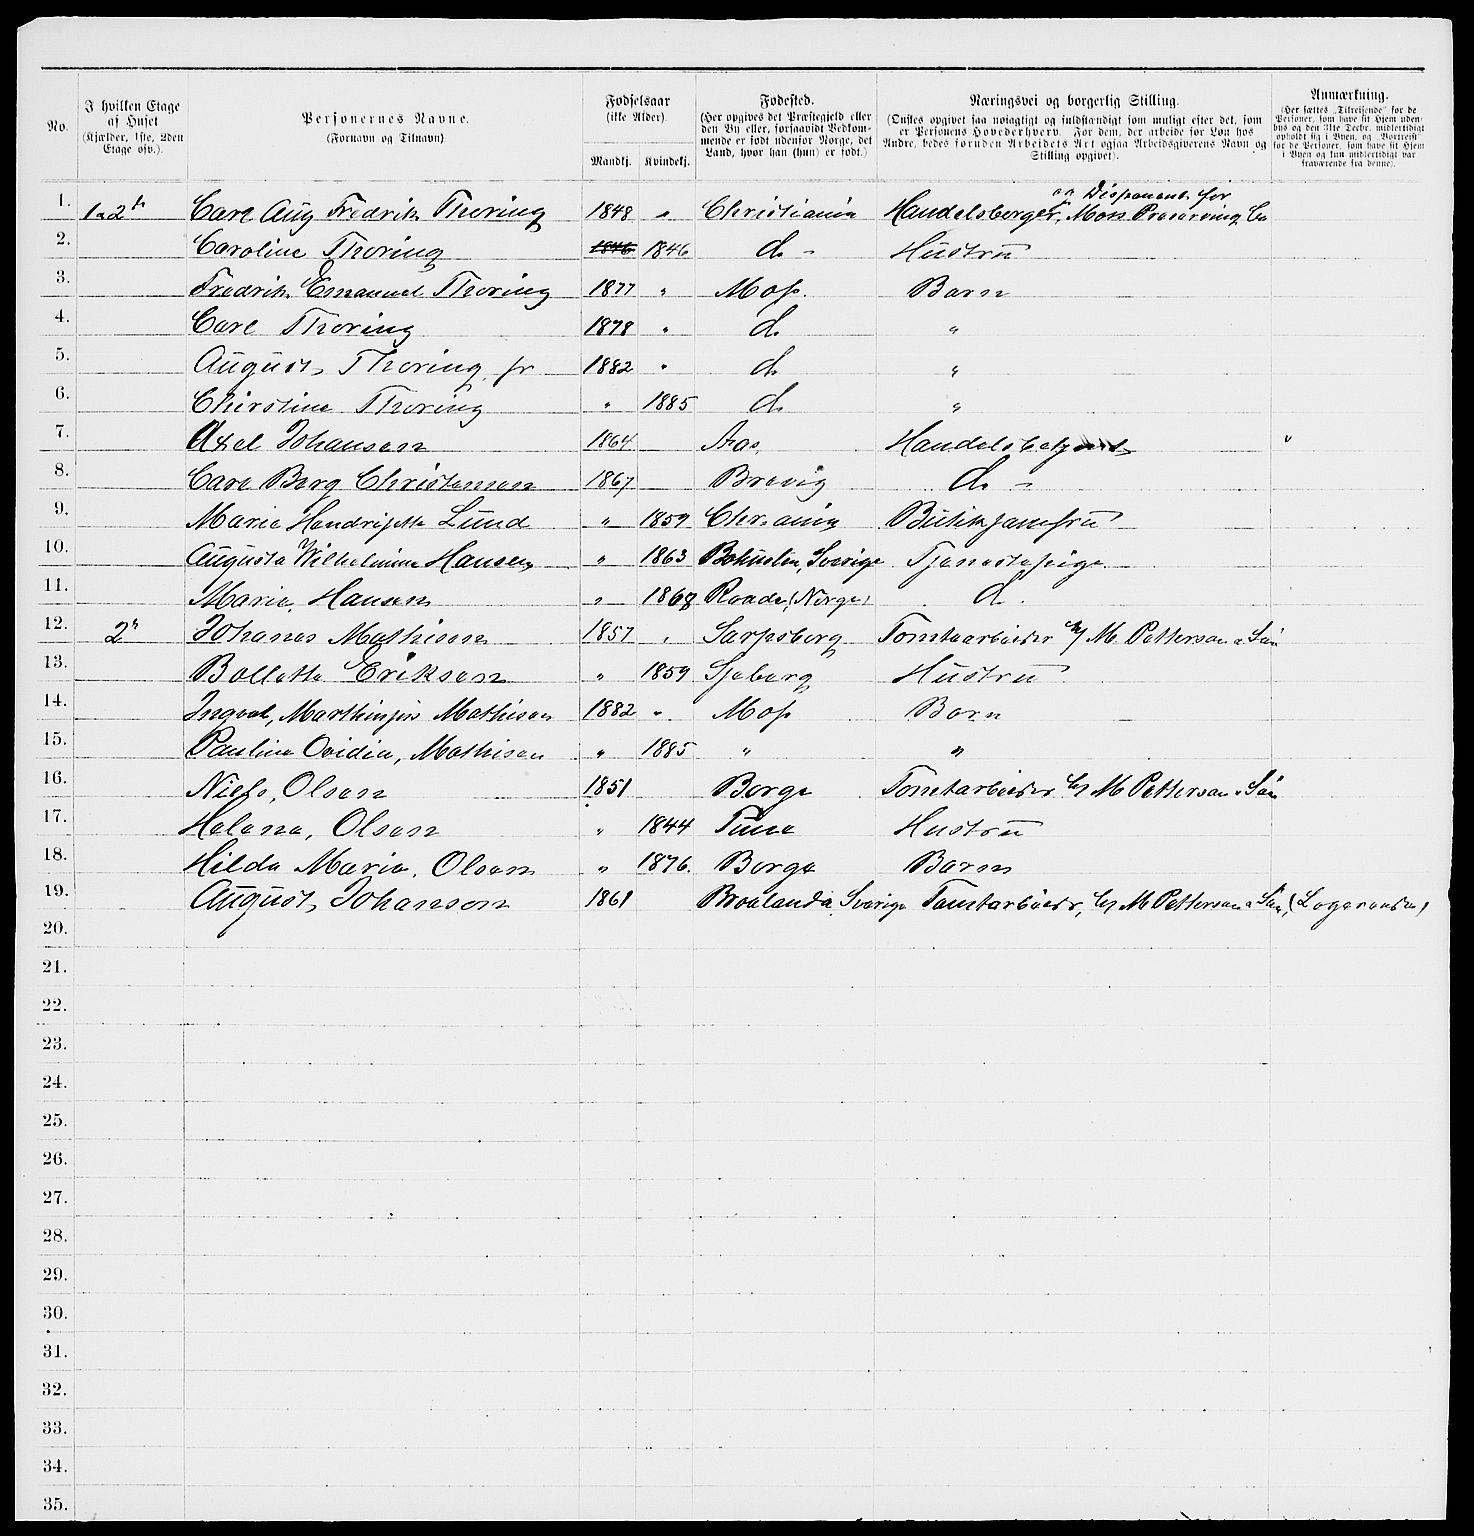 No.
I hvilken Etage af Huset (Kjælder, 1ste, 2den Etage osv.).
Personernes Navne. (Fornavn og Tilnavn)
Fødselsaar (ikke Alder).
Mandkj. Kvindekj.
Fødested. (Her opgives det Præstegjeld eller den By eller, forsaavidt Vedkommende er født udenfor Norge, det Land, hvor han (hun) er født.)
Næringsvei og borgerlig Stilling. (Ønskes opgivet saa nøiagtigt og fuldstændigt som muligt efter det, som er Personens Hovederhverv. For dem, der arbeide for Løn hos Andre, bedes foruden Arbeidets Art ogsaa Arbeidsgiverens Navn og Stilling opgivet).
Anmærkning. (Her sættes „Tilreisende“ for de Personer, som have sit Hjem udenbys og den 31te Decbr. midlertidigt opholdt sig i Byen, og „Bortreist“ for de Personer, som have sit Hjem i Byen og kun midlertidigt var fraværende fra denne).
1. 1 & 2 Carl Aug Fredrik Thoring 1848 " Christiania Handelsborger, og Disponent for Moss Preserving Co
2. Caroline Thoring 1846 1846 do Hustru
3. Fredrik Emanuel Thoring 1877 " Moss. Barn
4. Carl Thoring 1878 " do "
5. August Thoring jr 1882 " do "
6. Christine Thoring " 1885 do "
7. Axel Johansen 1864 Aas, Handelsbetjent "
8. Carl Berg Christensen 1867 Brevig do
9. Marie Hendrijette Lund " 1859 Chr.ania Butikjomfru
10. Augusta Wilhelmine Hansen " 1863 Bohuslen, Sverige Tjenestepige
11. Marie, Hansen " 1868 Raade (Norge) do
12. 2 Johanes Mathisen 1857 " Sarpsborg Tomtearbeider M. Petterson & Søn
13. Bollette Eriksen " 1859 Sjeberg Hustru
14. Ingval, Marthinjus Mathisen 1882 " Moss Barn
15. Pauline Ovidia, Mathisen " 1885 " "
16. Niels, Olsen 1851 Borge Tomtarbeider M Petterson & Søn
17. Helene, Olsen " 1844 Tune Hustru
18. Hilda Marie, Olsen " 1876. Borge Barn
19. August, Johanson 1861 Broalanda, Sverige Tomtarbeider, M Petterson & Søn, (Logerende)
20.
21.
22.
23.
24.
25.
26.
27.
28.
29.
30.
31.
32.
33.
34.
35.